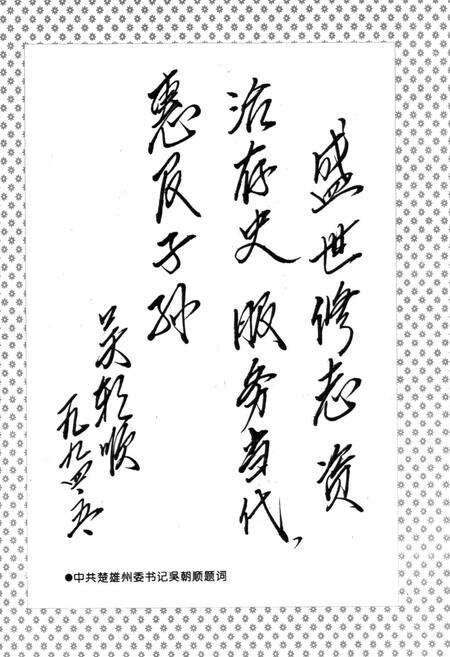 盛世修志 资
治存史 服务当代、
惠及子孙
吴朝顺
一九九四·五
●中共楚雄州委书记吴朝顺题词